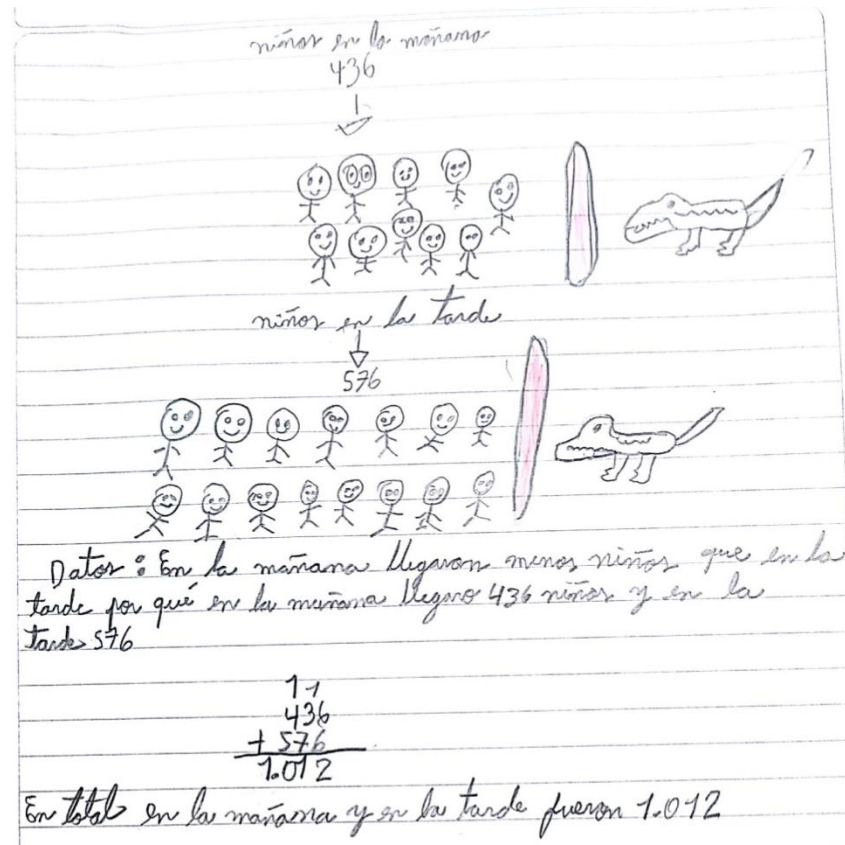 niños en la mañana
436
niños en la tarde
576
Datos: En la mañana llegaron menos niños que en la
tarde por qué en la mañana llegaro 436 niños y en la
tarde 576
11
436
+ 576
1.012
En total en la mañana y en la tarde fueron 1.012